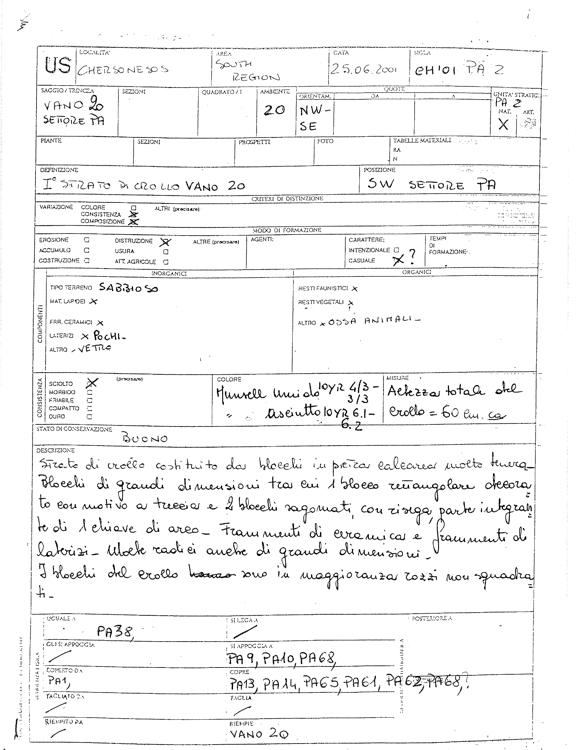 US
LOCALITA'
CHERSONESOS
AREA
SOUTH
REGION
DATA
25.06.2001
SIGLA
CH'01 PA 2
SAGGIO / TRINCEA
VANO 20
SETTORE PA
SEZIONI
QUADRATO / I
AMBIENTE
20
QUOTE
ORIENTAM.
NW-
SE
DA
A
UNITA' STRATIG.
PA 2
NAT. ART.
X
PIANTE
SEZIONI
PROSPETTI
FOTO
TABELLE MATERIALI
RA
N
DEFINIZIONE
I° STRATO DI CROLLO VANO 20
POSIZIONE
SW SETTORE PA
CRITERI DI DISTINZIONE
VARIAZIONE COLORE ALTRI (precisare)
CONSISTENZA X
COMPOSIZIONE X
MODO DI FORMAZIONE
EROSIONE DISTRUZIONE X ALTRE (precisare)
ACCUMULO USURA
COSTRUZIONE ATT. AGRICOLE
AGENTI:
CARATTERE:
INTENZIONALE
CASUALE X ?
TEMPI
DI
FORMAZIONE:
COMPONENTI
INORGANICI
TIPO TERRENO SABBIOSO
MAT. LAPIDEI X
FRR. CERAMICI X
LATERIZI X POCHI-
ALTRO - VETRO
ORGANICI
RESTI FAUNISTICI X
RESTI VEGETALI X
ALTRO X OSSA ANIMALI-
CONSISTENZA
SCIOLTO X (precisare)
MORBIDO
FRIABILE
COMPATTO
DURO
COLORE
Munsell Umido 10YR 4/3-
3/3
" asciutto 10YR 6.1-
6.2
MISURE
Altezza totale del
crollo = 60 cm. ca
STATO DI CONSERVAZIONE
BUONO
DESCRIZIONE
Strato di crollo costituito da blocchi in pietra calcarea molto tenera-
Blocchi di grandi dimensioni tra cui 1 blocco rettangolare decora-
to con motivo a treccia e 2 blocchi sagomati, con risega, parte integran-
te di 1 chiave di arco- Frammenti di ceramica e frammenti di
laterizi- Molte radici anche di grandi dimensioni-
I blocchi del crollo sono in maggioranza rozzi non squadra
ti-
UGUALE A
PA38,
SI LEGA A
POSTERIORE A
GLI SI APPOGGIA
SI APPOGGIA A
PA9, PA10, PA68,
COPERTO DA
PA1,
COPRE
PA13, PA14, PA65, PA61, PA62, PA68,?
TAGLIATO DA
TAGLIA
RIEMPITO DA
RIEMPIE
VANO 20